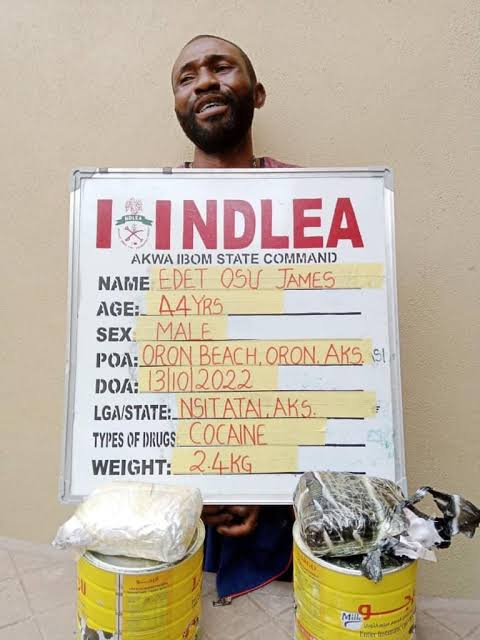 I NDLEA INDLEA
AKWA IBOM STATE COMMAND
NAME EDET OSU JAMES
AGE: 44YRS
SEX: MALE
POA: ORON BEACH, ORON, AKS.
DOA: 13/10/2022
LGA/STATE: NSITATAI, AKS.
TYPES OF DRUGS COCAINE
WEIGHT: 2.4KG
Milk